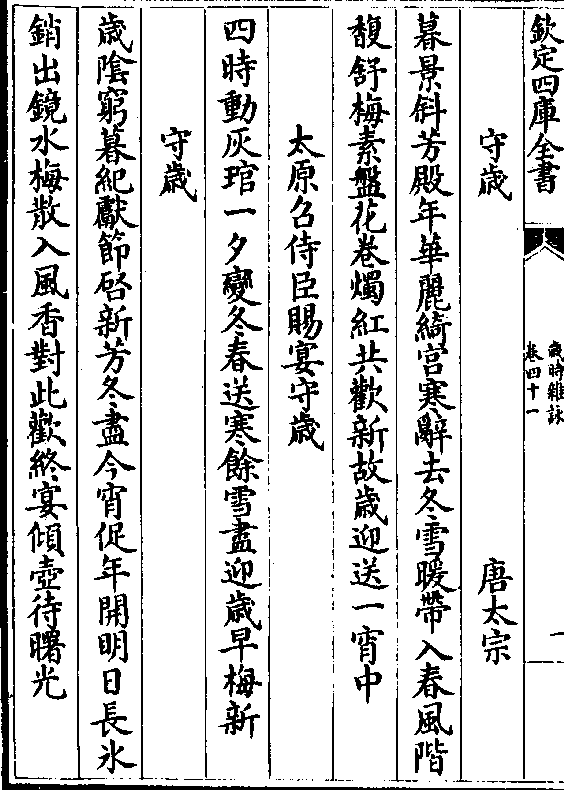 欽定四庫全書
歲時雜詠
卷四十一
一
守歲
唐太宗
暮景斜芳殿年華麗綺宮寒辭去冬雪暖帶入春風階
馥舒梅素盤花卷燭紅共歡新故歲迎送一宵中
太原召侍臣賜宴守歲
四時動灰琯一夕變冬春送寒餘雪盡迎歲早梅新
守歲
歲陰窮暮紀獻節啓新芳冬盡今宵促年開明日長氷
銷出鏡水梅散入風香對此歡終宴傾壺待曙光